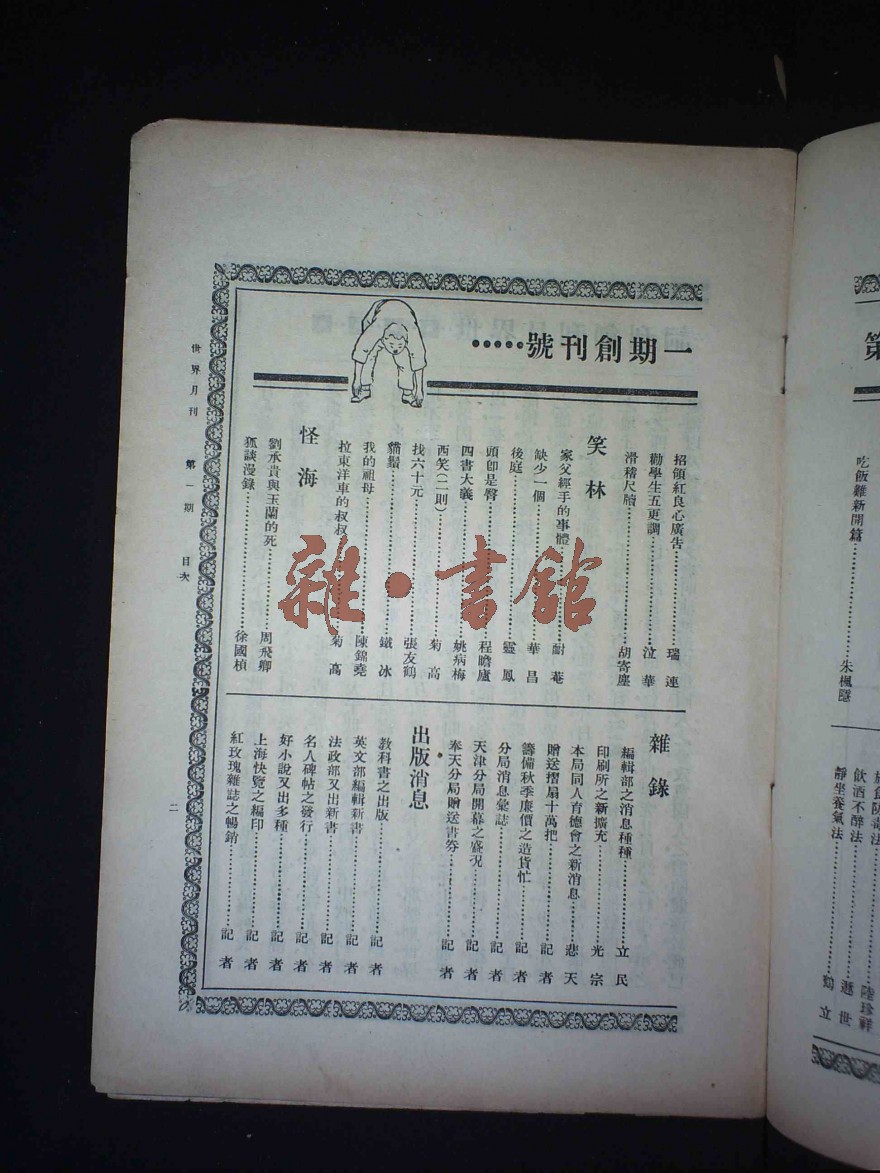 第
吃飯難新開篇……朱楓隱
陸珍祥
飲酒不醉法……遯世
靜坐養氣法……鶴立
一期創刊號……
招領紅良心廣告……瑞蓮
勸學生五更調……泣華
滑稽尺牘……胡寄塵
笑林
家父經手的事體……耐菴
缺少一個……華昌
後庭……靈鳳
頭即是臀……程瞻廬
四書大義……姚病梅
西笑(二則)……菊高
找六十元……張友鶴
貓鬚……鐵冰
我的祖母……陳錦堯
拉東洋車的叔叔……菊高
怪海
劉承貴與玉蘭的死……周飛卿
狐談漫錄……徐國楨
雜錄
編輯部之消息種種……立民
印刷所之新擴充……光宗
本局同人育德會之新消息……悲天
贈送摺扇十萬把……記者
籌備秋季廉價之造貨忙……記者
分局消息彙誌……記者
天津分局開幕之盛況……記者
奉天分局贈送書券……記者
出版消息
教科書之出版……記者
英文部編輯新書……記者
法政部又出新書……記者
名人碑帖之發行……記者
好小說又出多種……記者
上海快覽之編印……記者
紅玫瑰雜誌之暢銷……記者
世界月刊 第一期 目次
二
雜·書館